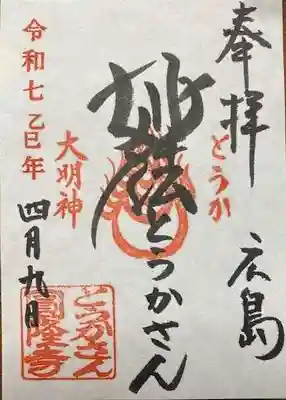 奉拝
広島
とうか
妙法
とうかさん
大明神
令和七乙巳年
四月九日
とうかさん
圓隆寺